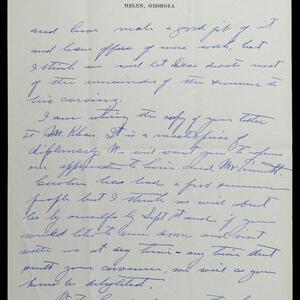 HELEN, GEORGIA
and have made a good job of it
and have offers of more work, but
I think we will let Dear devote most
of the remainder of the summer to
his carving.
I am returning the copy of your letter
to Mr. Khan. It is a masterpiece of
diplomacy. We will want you to express
our appreciation to him and Mr
has had a few summer
people but I think we will about
be by ourselves by Sept. 1st and if you
would like to run down and visit
with us at any time - any time that
suits your convenience, we will as you
know be delighted.